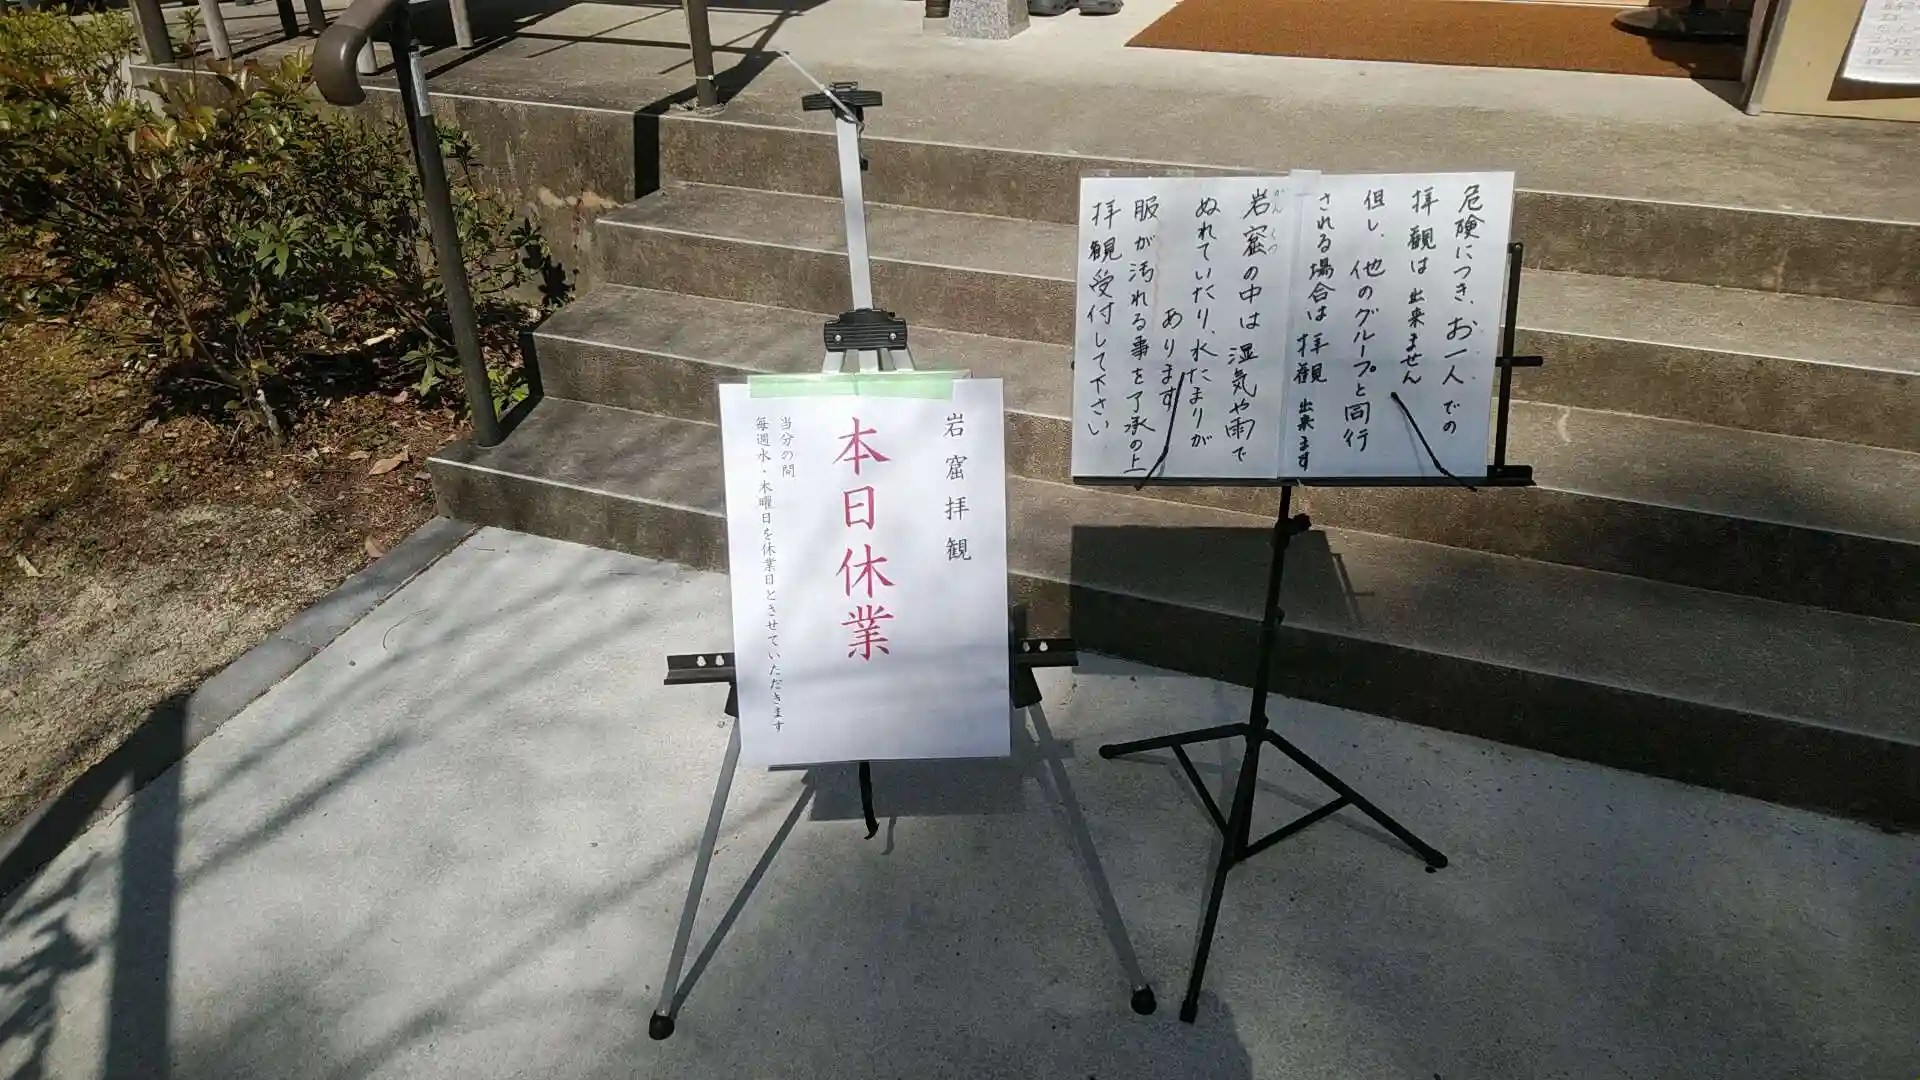 岩窟拝観
本日休業
当分の間
毎週水・木曜日を休業日とさせていただきます
危険につき、お一人での
拝観は出来ません
但し、他のグループと同行
される場合は拝観出来ます
岩窟の中は湿気や雨で
がんくつ
ぬれていたり、水たまりが
あります
服が汚れる事を了承の上
拝観受付して下さい